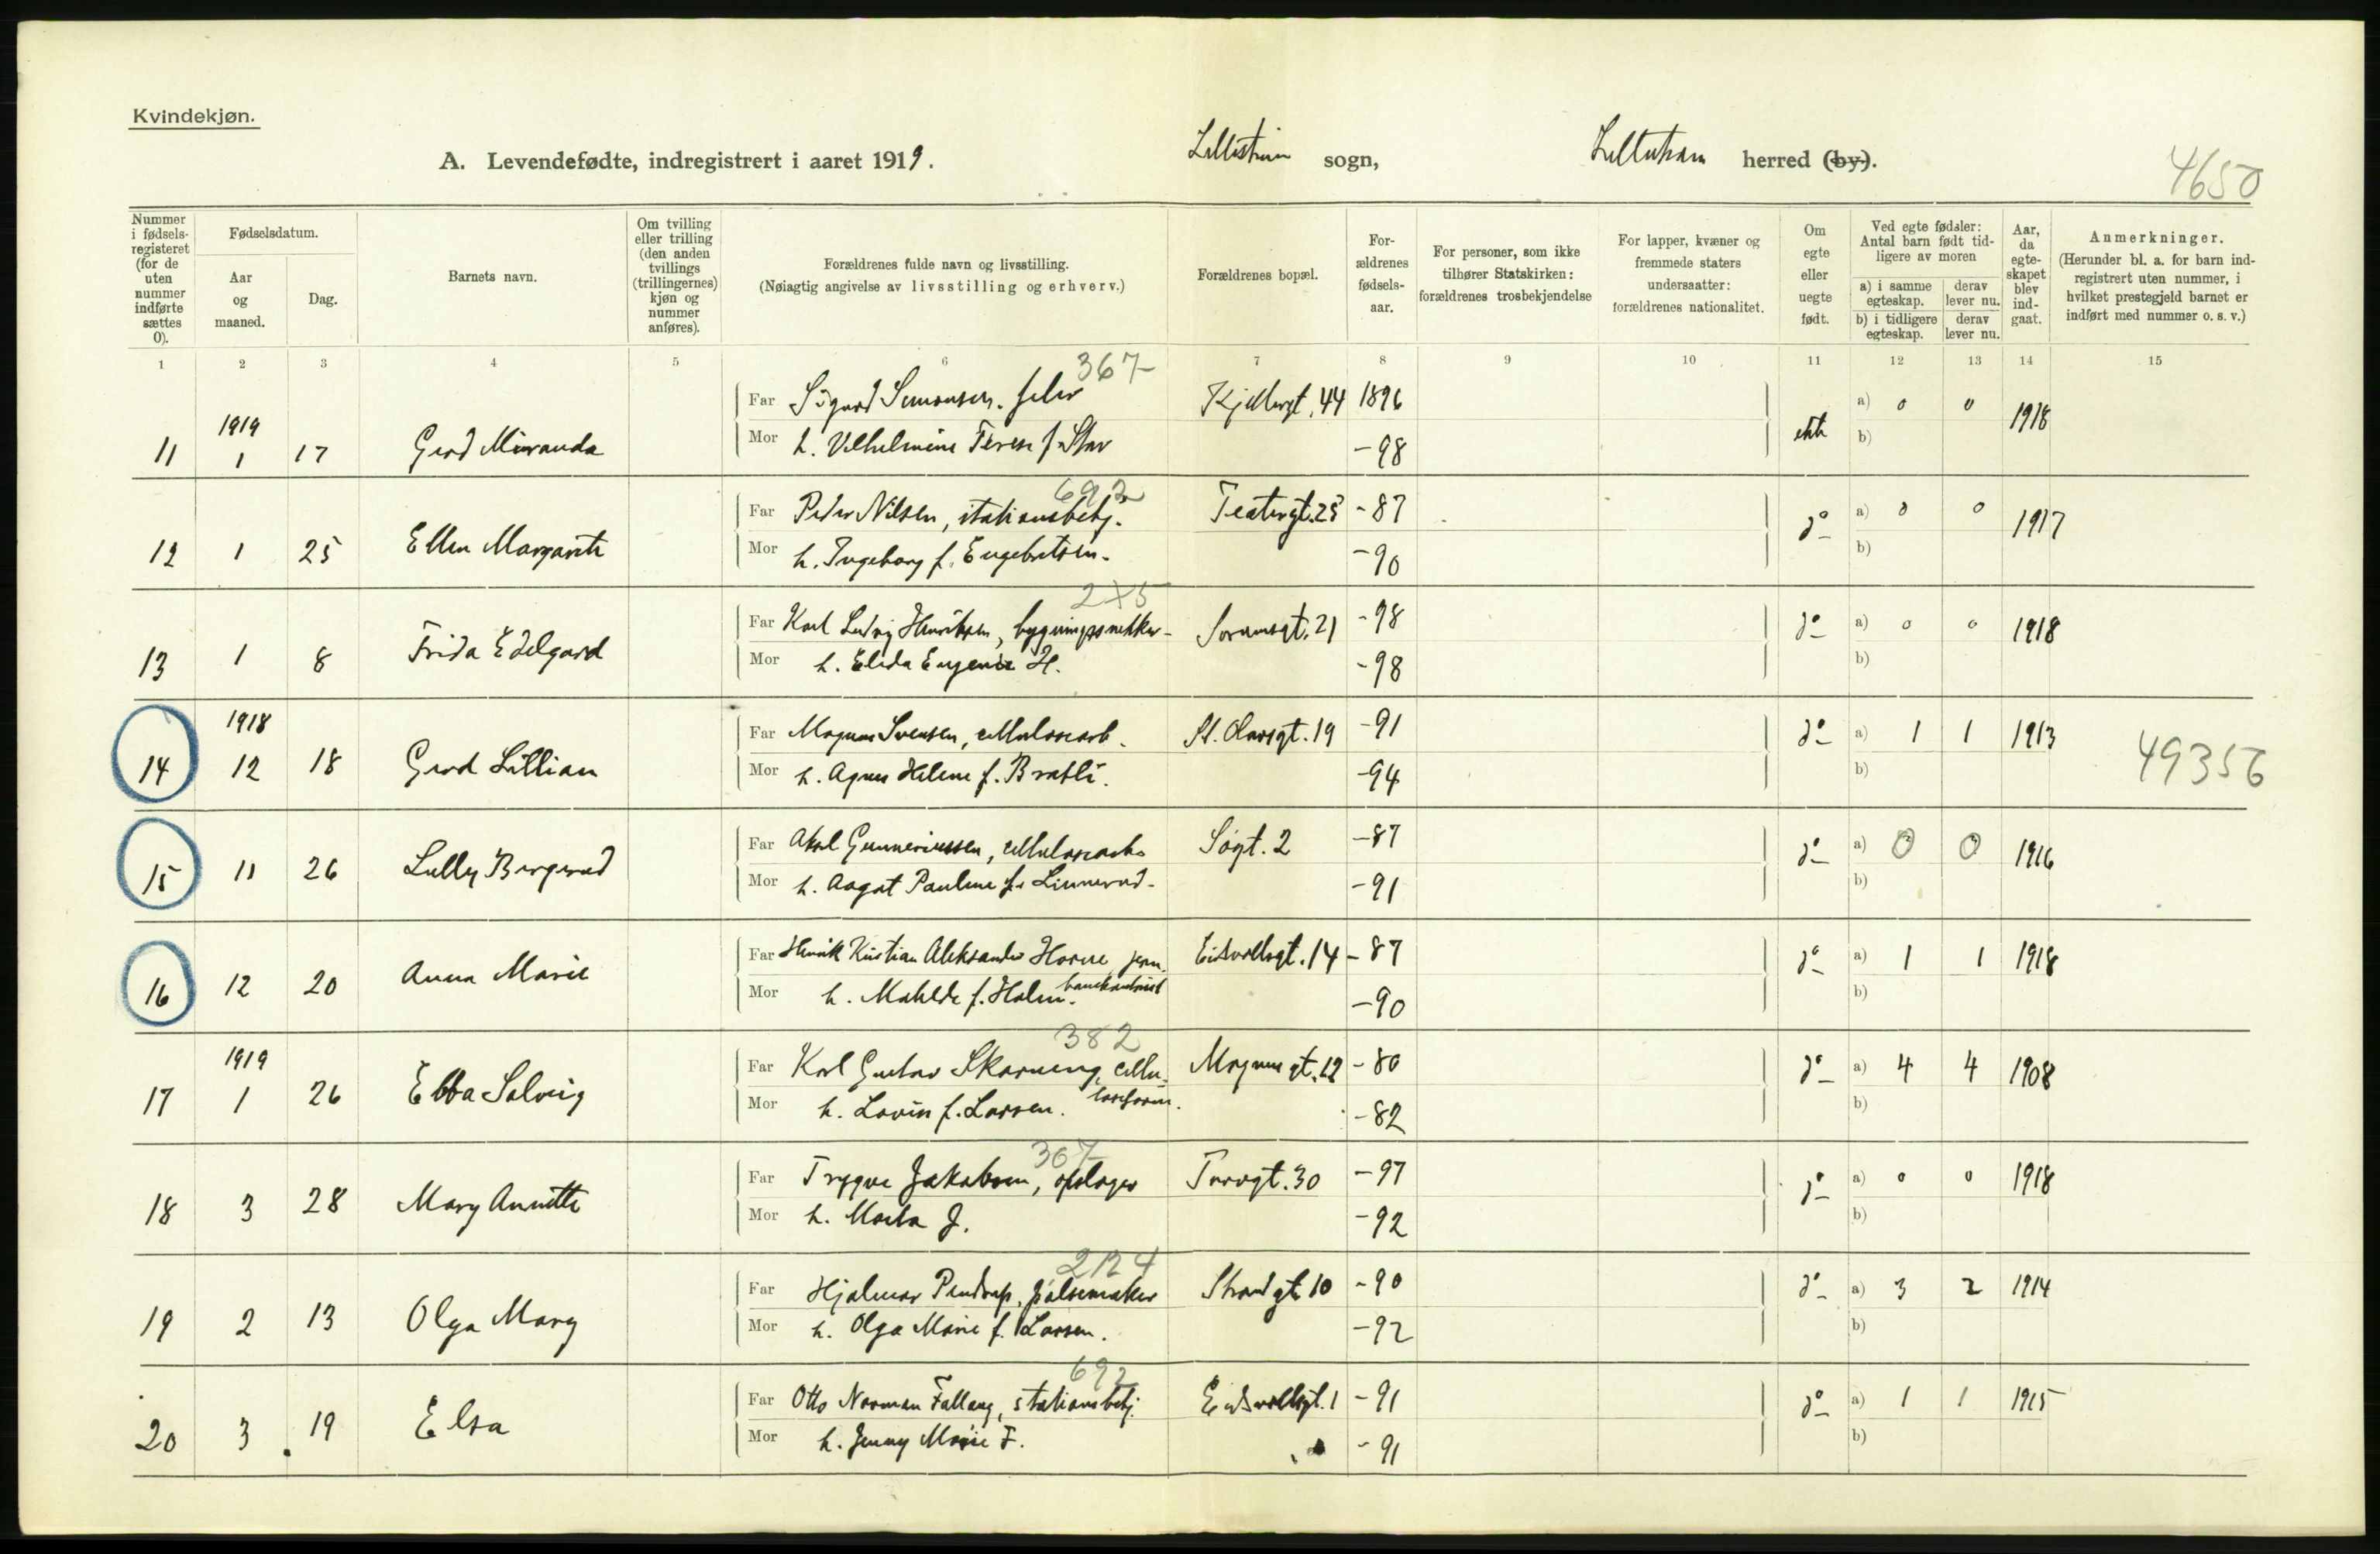 Kvindekjøn.
A. Levendefødte, indregistrert i aaret 1919. Lillestrøm sogn, herred (by).
4650
Nummer i fødsels-registeret (for de uten nummer indførte sættes 0).
Fødselsdatum.
Aar og maaned.
Dag.
Barnets navn.
Om tvilling eller trilling (den anden tvillings (trillingernes) kjøn og nummer anføres).
Forældrenes fulde navn og livsstilling.
(Nøiagtig angivelse av livsstilling og erhverv.)
Forældrenes bopæl.
For-ældrenes fødsels-aar.
For personer, som ikke tilhører Statskirken: forældrenes trosbekjendelse
For lapper, kvæner og fremmede staters undersaatter: forældrenes nationalitet.
Om egte eller uegte født.
Ved egte fødsler: Antal barn født tid-ligere av moren
a) i samme egteskap.
derav lever nu.
b) i tidligere egteskap.
derav lever nu.
Aar, da egte-skapet blev ind-gaat.
Anmerkninger.
(Herunder bl. a. for barn ind-registrert uten nummer, i hvilket prestegjeld barnet er indført med nummer o. s. v.)
1 2 3 4 5 6 7 8 9 10 11 12 13 14 15
367
Far Sigurd Simonsen. Kjellergt. 44 1896 a) 0 0 1918
1919
11 1 17 Gerd Miranda Mor h. Vilhelmine f. -98 ekte b)
692
Far Peder Nilsen, stationsbetj. Teatergt. 25 -87 a) 0 0 1917
12 1 25 Ellen Margarete Mor h. Ingeborg f. Engebretsen. -90 do b)
Far Karl Ludvig Henriksen, bygningssnekker Sørumsgt. 21 -98 do a) 0 0 1918
13 1 8 Frida Edelgard Mor h. Elida Eugenie H. -98 b)
1918
Far Magnus Svensen, cellulosearb. St. Olavsgt. 19 -91 do a) 1 1 1913
14 12 18 Gerd Lillian Mor h. Agnes Helene f. Bratli. -94 b) 49356
Far Aksel Gunneriussen, cellulosearb. Sogt. 2 -87 do a) 0 0 1916
15 11 26 Lilly Bergerud Mor h. Aagot Pauline f. Linnerud. -91 b)
Far Henrik Kristian Aleksander jern- Eidsvollsgt. 14 -87 do a) 1 1 1918
16 12 20 Anna Marie Mor h. Mathilde f. Holm. banekontorist -90 b)
382
1919
Far Karl Gustav Skarning, cellu- Magnusgt. 12 -80 do a) 4 4 1908
17 1 26 Ebba Solveig Mor h. Lovise f. Larsen. loseform. -82 b)
367
Far Trygve Jakobsen, opslager Torvgt. 30 -97 do a) 0 0 1918
18 3 28 Mary Annette Mor h. Marta J. -92 b)
2124
Far Hjalmar pølsemaker Strandgt. 10 -90 do a) 3 2 1914
19 2 13 Olga Mary Mor h. Olga Marie f. Larsen. -92 b)
692
Far Otto Norman Fallang, stationsbetj. Eidsvollsgt. 1 -91 do a) 1 1 1915
20 3 19 Elsa Mor h. Jenny Marie F. -91 b)